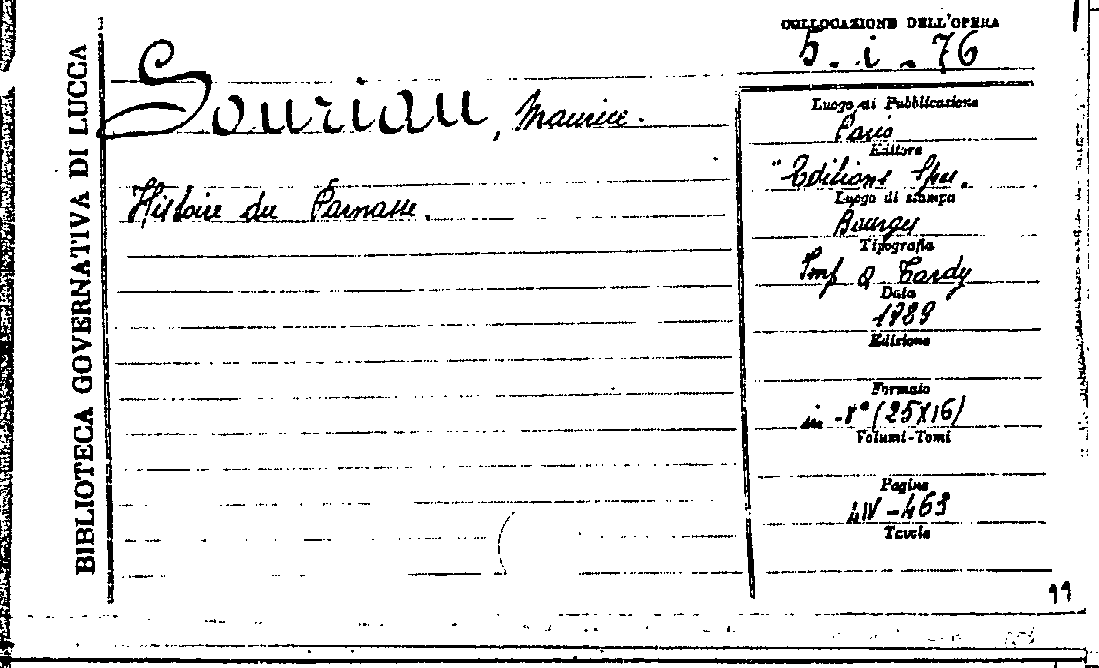 BIBLIOTECA GOVERNATIVA DI LUCCA
COLLOCAZIONE DELL'OPERA
5. i. 76
Souriau, Maurice.
Histoire du Parnasse.
Luogo di Pubblicazione
Paris
Editore
"Editions Spes.
Luogo di stampa
Bourges
Tipografia
Imp A Tardy
Data
Edizione
Formato
in -8° (25X16)
Volumi-Tomi
Pagine
Tavole
11